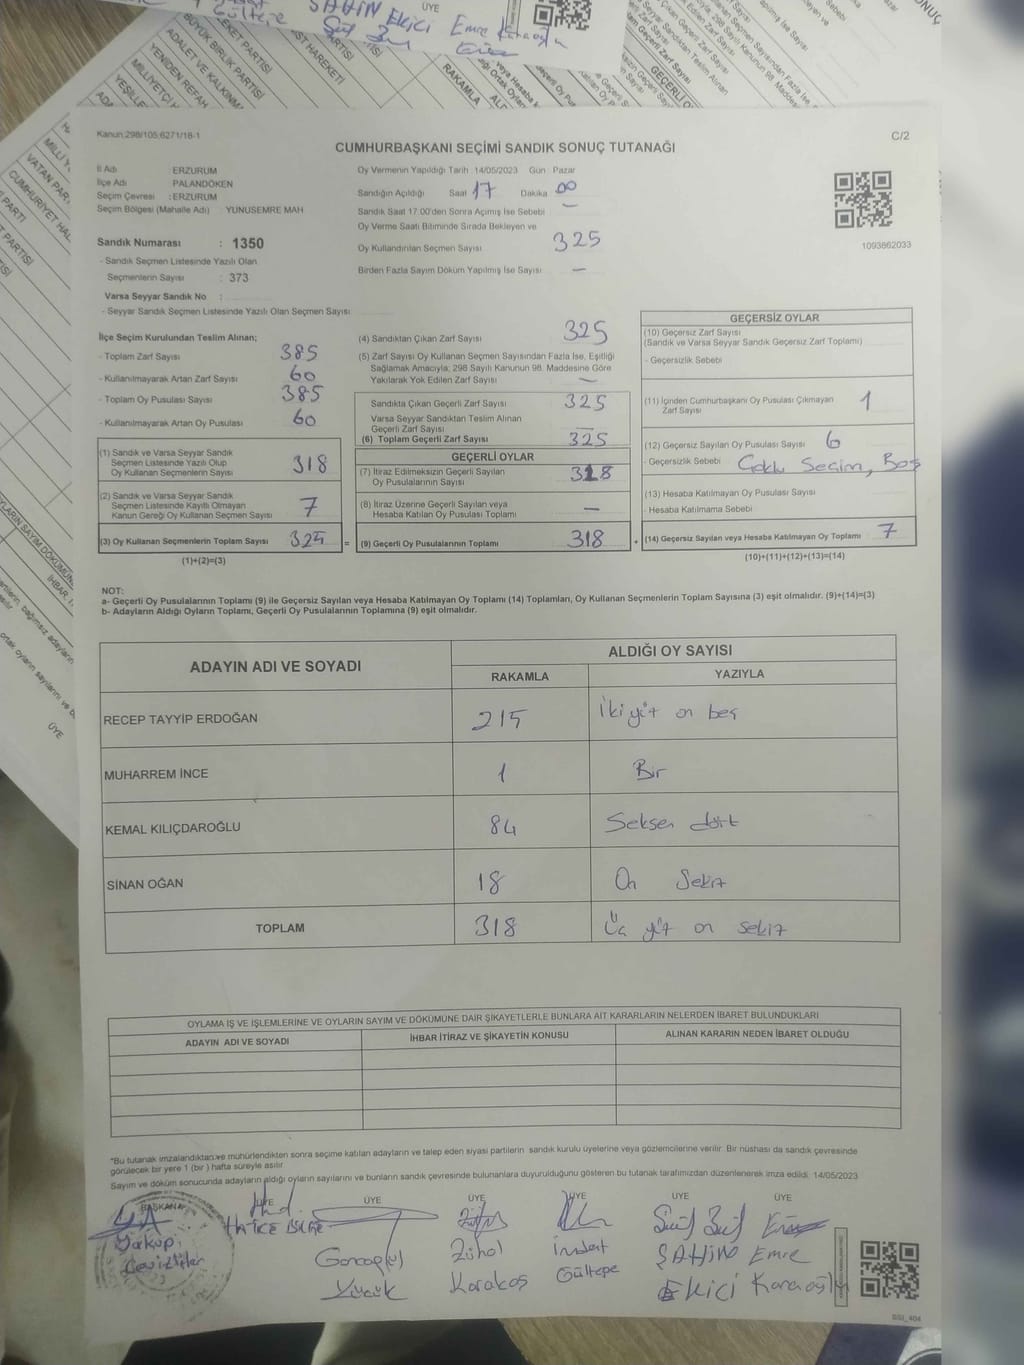 Kanun:298/105;6271/18-1
C/2
CUMHURBAŞKANI SEÇİMİ SANDIK SONUÇ TUTANAĞI
İl Adı ERZURUM
İlçe Adı PALANDÖKEN
Seçim Çevresi : ERZURUM
Seçim Bölgesi (Mahalle Adı) YUNUSEMRE MAH
Sandık Numarası : 1350
- Sandık Seçmen Listesinde Yazılı Olan
Seçmenlerin Sayısı : 373
Varsa Seyyar Sandık No :
- Seyyar Sandık Seçmen Listesinde Yazılı Olan Seçmen Sayısı
Oy Vermenin Yapıldığı Tarih :14/05/2023 Gün Pazar
Sandığın Açıldığı Saat 17 Dakika 00
Sandık Saat 17:00'den Sonra Açımış İse Sebebi -
Oy Verme Saati Bitiminde Sırada Bekleyen ve
Oy Kullandırılan Seçmen Sayısı 325
Birden Fazla Sayım Döküm Yapılmış İse Sayısı -
1093862033
İlçe Seçim Kurulundan Teslim Alınan;
- Toplam Zarf Sayısı 385
- Kullanılmayarak Artan Zarf Sayısı 60
- Toplam Oy Pusulası Sayısı 385
- Kullanılmayarak Artan Oy Pusulası 60
(1) Sandık ve Varsa Seyyar Sandık
Seçmen Listesinde Yazılı Olup
Oy Kullanan Seçmenlerin Sayısı 318
(2) Sandık ve Varsa Seyyar Sandık
Seçmen Listesinde Kayıtlı Olmayan
Kanun Gereği Oy Kullanan Seçmen Sayısı 7
(3) Oy Kullanan Seçmenlerin Toplam Sayısı 325 =
(1)+(2)=(3)
(4) Sandıktan Çıkan Zarf Sayısı 325
(5) Zarf Sayısı Oy Kullanan Seçmen Sayısından Fazla İse, Eşitliği
Sağlamak Amacıyla; 298 Sayılı Kanunun 98. Maddesine Göre
Yakılarak Yok Edilen Zarf Sayısı -
Sandıkta Çıkan Geçerli Zarf Sayısı 325
Varsa Seyyar Sandıktan Teslim Alınan
Geçerli Zarf Sayısı -
(6) Toplam Geçerli Zarf Sayısı 325
GEÇERLİ OYLAR
(7) İtiraz Edilmeksizin Geçerli Sayılan
Oy Pusulalarının Sayısı 318
(8) İtiraz Üzerine Geçerli Sayılan veya
Hesaba Katılan Oy Pusulası Toplamı -
(9) Geçerli Oy Pusulalarının Toplamı 318 +
GEÇERSİZ OYLAR
(10) Geçersiz Zarf Sayısı
(Sandık ve Varsa Seyyar Sandık Geçersiz Zarf Toplamı)
- Geçersizlik Sebebi
(11) İçinden Cumhurbaşkanı Oy Pusulası Çıkmayan
Zarf Sayısı 1
(12) Geçersiz Sayılan Oy Pusulası Sayısı 6
- Geçersizlik Sebebi Çoklu Seçim, Boş
(13) Hesaba Katılmayan Oy Pusulası Sayısı
- Hesaba Katılmama Sebebi
(14) Geçersiz Sayılan veya Hesaba Katılmayan Oy Toplamı 7
(10)+(11)+(12)+(13)=(14)
NOT:
a- Geçerli Oy Pusulalarının Toplamı (9) ile Geçersiz Sayılan ve Hesaba Katılmayan Oy Toplamı (14) Toplamları, Oy Kullanan Seçmenlerin Toplam Sayısına (3) eşit olmalıdır. (9)+(14)=(3)
b- Adayların Aldığı Oyların Toplamı, Geçerli Oy Pusulalarının Toplamına (9) eşit olmalıdır.
ADAYIN ADI VE SOYADI
ALDIĞI OY SAYISI
RAKAMLA YAZIYLA
RECEP TAYYİP ERDOĞAN 215 İki yüz on beş
MUHARREM İNCE 1 Bir
KEMAL KILIÇDAROĞLU 84 Seksen dört
SİNAN OĞAN 18 On Sekiz
TOPLAM 318 Üç yüz on sekiz
OYLAMA İŞ VE İŞLEMLERİNE VE OYLARIN SAYIM VE DÖKÜMÜNE DAİR ŞİKAYETLERLE BUNLARA AİT KARARLARIN NELERDEN İBARET BULUNDUKLARI
ADAYIN ADI VE SOYADI İHBAR İTİRAZ VE ŞİKAYETİN KONUSU ALINAN KARARIN NEDEN İBARET OLDUĞU
*Bu tutanak imzalandıktan ve mühürlendikten sonra seçime katılan adayların ve talep eden siyasi partilerin sandık kurulu üyelerine veya gözlemcilerine verilir. Bir nüshası da sandık çevresinde
görülecek bir yere 1 (bir) hafta süreyle asılır
Sayım ve döküm sonucunda adayların aldığı oyların sayılarını ve bunların sandık çevresinde bulunanlara duyurulduğunu gösteren bu tutanak tarafımızdan düzenlenerek imza edildi. 14/05/2023
BAŞKAN ÜYE ÜYE ÜYE ÜYE ÜYE ÜYE
Yakup HATİCE Zühal ŞAHİN Emre
Yücük Karakoş Gültepe Ekici Karaoğlu
SSI_404